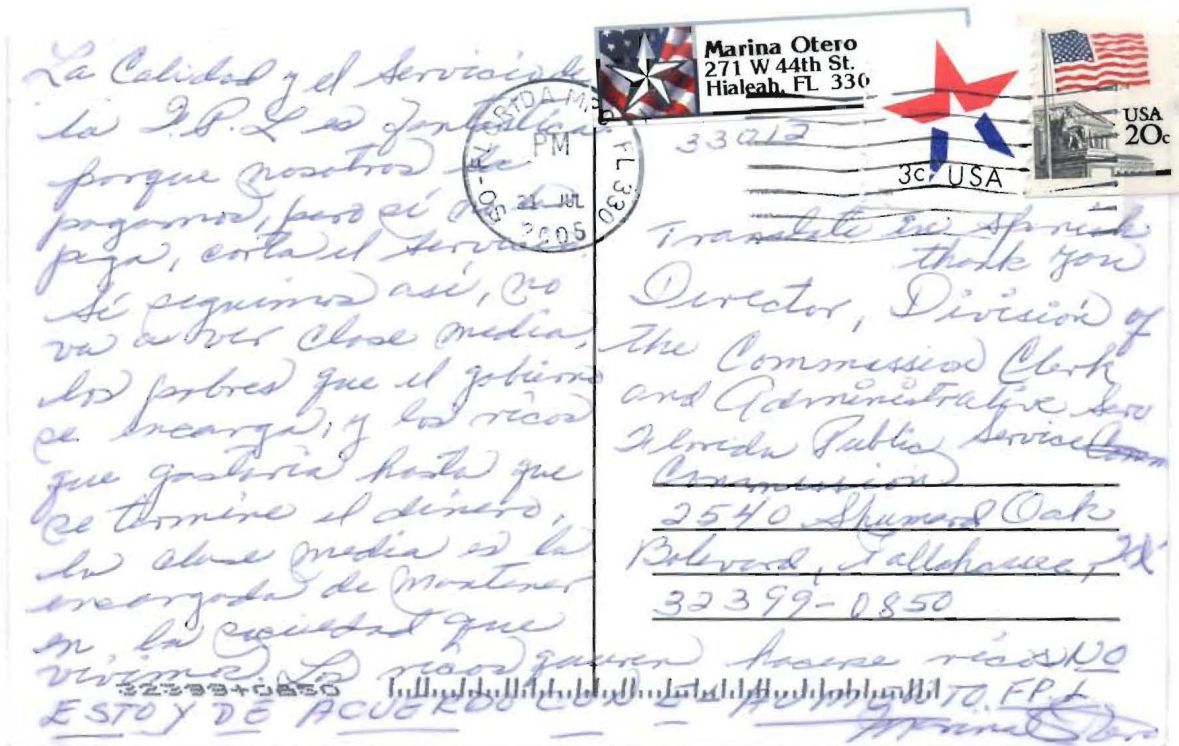 La Calidad y el Servicio de
la F.P.L es fantastica
porque nosotros la
pagamos, pero sí no
paga, corta el servicio.
Sí seguimos así, no
va a ver clase media,
los pobres que el gobierno
se encarga, y los ricos
que gastaria hasta que
se termine el dinero,
la clase media es la
encargada de mantener
en la sociedad que
vivimos. Los ricos quieren hacerse ricos NO
ESTOY DE ACUERDO CON E AUMENTO. F.P.L
Marina Otero
32399+0850
Marina Otero
271 W 44th St.
Hialeah, FL 330
33012
PM
21 JUL
2005
FL 330
3c USA
USA
20c
Translate in Spanish
thank you
Director, División of
the Commission Clerk
and Administrative Serv
Florida Public Service Comm
Commission
2540 Shumard Oak
Bolevard, Tallahassee, Fl
32399-0850